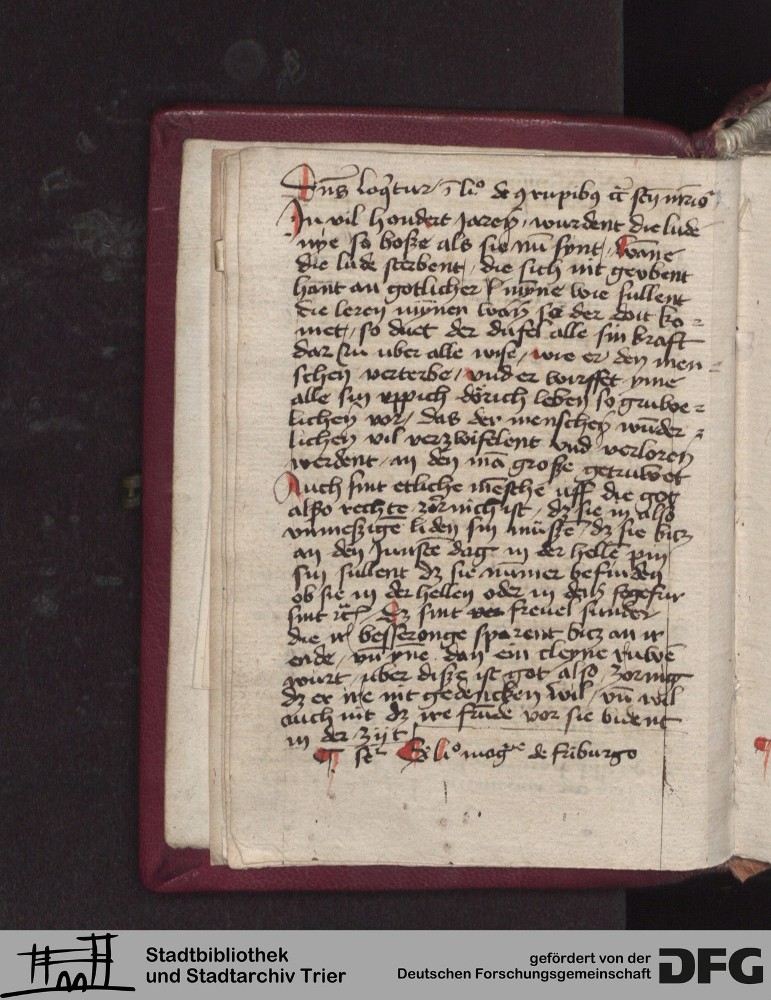 Dns loqtur
In vil hondert Jaren wurdent die lude
nye so bosze als sie nu synt, wane
die lude sterbent, die sich nit geubent
hant an gotlicher mynne wie sullent
die leren mynen wan so der doit ko-
met, so duet der dufel alle sin kraft
dar zu uber alle wise, wie er den men-
schen verterbe, und er wirffet yme
alle sin uppich dorich leben so gruwe-
lichen vor, das der menschen wuder-
lichen vil verzwifelent und verloren
werdent, an den ma grosse getruwet
Auch sint etliche mensche uff die got
also rechte zornich ist, dz sie in also
unmeszige liden sin müsse, dz sie bicz
an den Junste dag in der helle pin
sin sullent dz sie nummer befinden
ob sie in der hellen oder in dem fegefur
sint dz sint freuel sunder
die ir besseronge sparent bicz an ir
ende, vn yne dan ein cleyne ruwe
wurt, uber disze ist got also, zornig
dz er ire nit gedencken wil, vn wil
auch nit dz ire frude vor sie bident
in der zijt
de friburgo
Stadtbibliothek
und Stadtarchiv Trier
gefördert von der
Deutschen Forschungsgemeinschaft
DFG